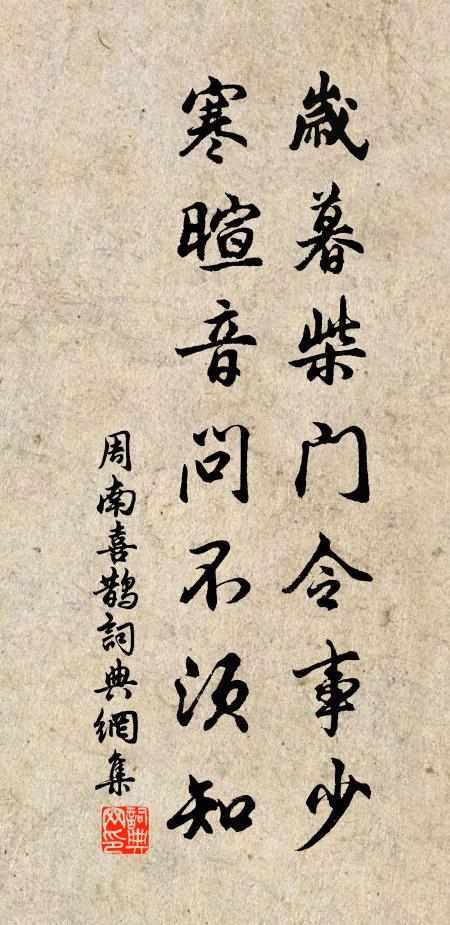 歲暮柴門令事少
寒暄音問不須知
周南喜鵲詞典網集
詞典
网印